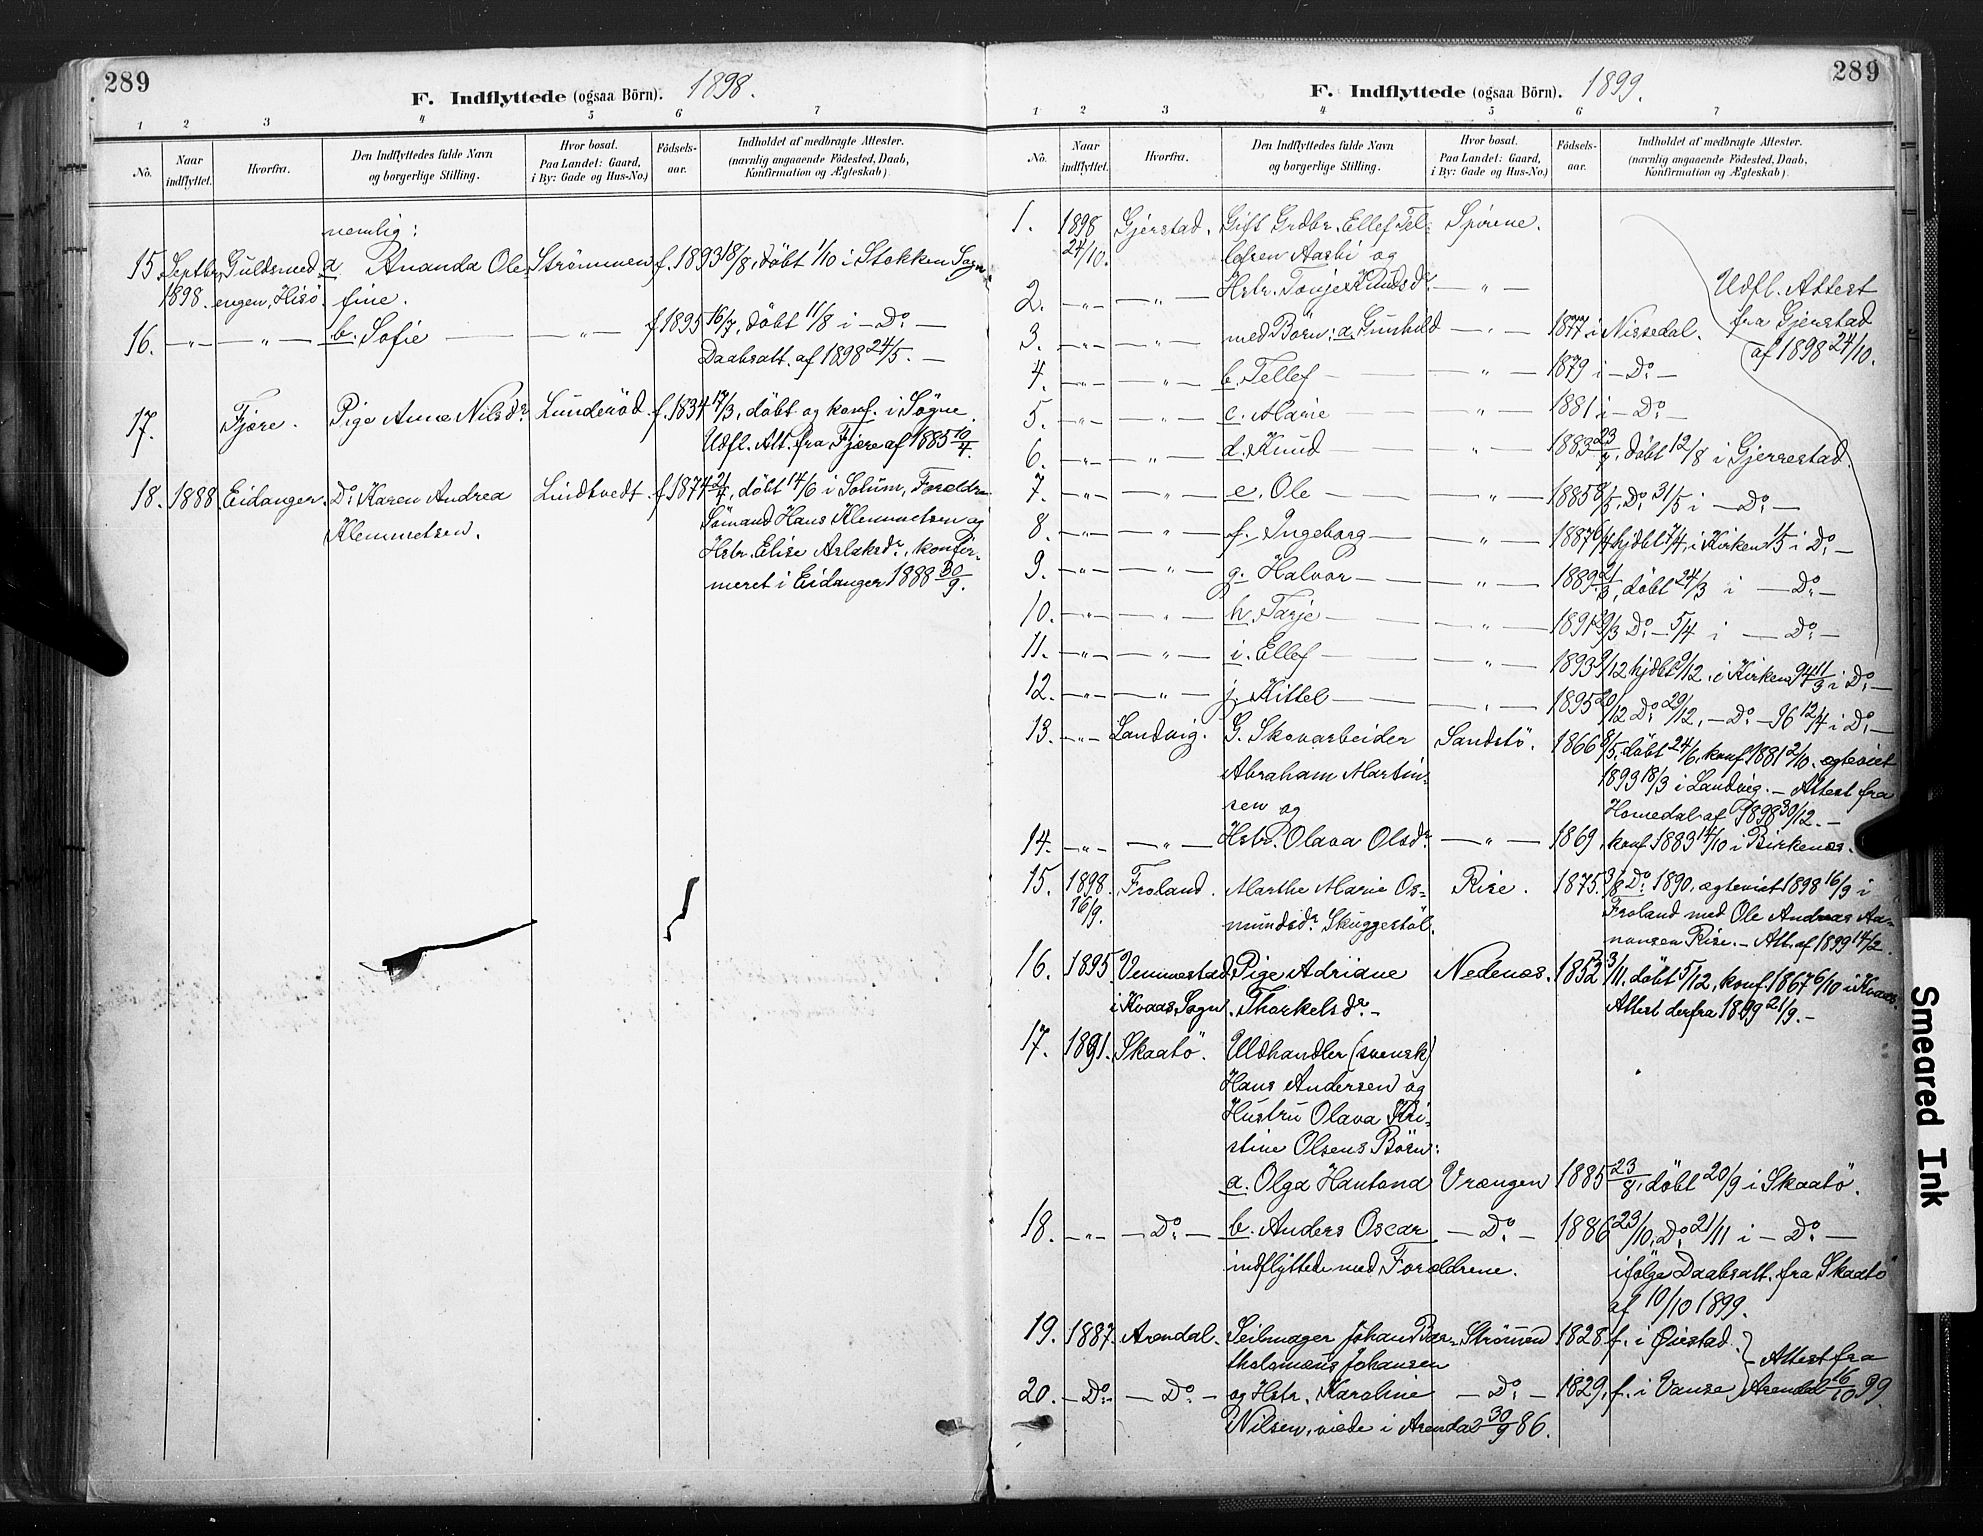 289
F. Indflyttede (ogsaa Börn). 1898.
1 2 3 4 5 6 7
No. Naar indflyttet. Hvorfra. Den Indflyttedes fulde Navn og borgerlige Stilling. Hvor bosat. Paa Landet: Gaard, i By: Gade og Hus-No.) Födsels-aar. Indholdet af medbragte Attester. (navnlig angaaende Födested, Daab, Konfirmation og Ægteskab).
nemlig:
15. Septbr. Guldsmed a Ananda Ole Strømmen f. 1893 18/8, döbt 1/10 i Stokken Sogn.
1898. engen, Hisö. fine.
16. — „ — — „ — b. Sofie — „ — f. 1895 16/7, döbt 11/8 i — Do. —
Daabsatt. af 1898 24/5. —
17. Fjære. Pige Anna Nilsdr. Lunderöd. f. 1834 17/3, döbt og konf. i Søgne.
Udfl. Att. fra Fjære af 1885 10/4.
18. 1888 Eidanger. Do. Karen Andrea Lindtvedt f. 1874 21/4, döbt 14/6 i Solum, Foreldre
Klemmetsen. Sömand Hans Klemmetsen og
Hstr. Elise Aslaksdr., konfir-
meret i Eidanger 1888 30/9.
289
F. Indflyttede (ogsaa Börn). 1899.
1 2 3 4 5 6 7
No. Naar indflyttet. Hvorfra. Den Indflyttedes fulde Navn og borgerlige Stilling. Hvor bosat. Paa Landet: Gaard, i By: Gade og Hus-No.) Födsels-aar. Indholdet af medbragte Attester. (navnlig angaaende Födested, Daab, Konfirmation og Ægteskab).
1. 1898 Gjerstad. Gift Grdbr. Ellef Tel- Spørene.
24/10. lefsen Aasbi og
2. — „ — — „ — Hstr. Tonje Knudsdr. — „ — Udfl. Attest
3. — „ — — „ — med Börn: a. Gunhild — „ — 1877 i Nissedal. fra Gjerstad
af 1898 24/10.
4. — „ — — „ — b. Tellef — — „ — 1879 i — Do. —
5. — „ — — „ — c. Marie — „ — 1881 i — Do. —
6. — „ — — „ — d. Knud — „ — 1883 23/7, döbt 12/8 i Gjerrestad.
7. — „ — — „ — e. Ole — — „ — 1885 8/5, Do. 31/5 i — Do. —
8. — „ — — „ — f. Ingeborg — — „ — 1887 6/4 hjdbt 7/4, i Kirken 1/5 i Do. —
9. — „ — — „ — g. Halvor — — „ — 1889 2/3, döbt 24/3 i — Do. —
10. — „ — — „ — h. Tarje — — „ — 1891 2/3 Do. — 5/4 i — Do. —
11. — „ — — „ — i. Ellef — — „ — 1893 9/12 hjdbt 9/12, i Kirken 94 11/3 i Do. —
12. — „ — — „ — j. Kittel — — „ — 1895 20/12 Do. 29/12, — Do. — 96 12/4 i Do. —
13. — „ — Landvig. G. Skovarbeider Sandstö. 1866 8/5, döbt 24/6, konf. 1881 2/10. ægteviet
Abraham Martin- 1893 18/3 i Landvig. — Attest fra
sen og Homedal af 1898 30/12. —
14. — „ — — „ — Hstr. Olava Olsdr. — „ — 1869, konf. 1883 14/10 i Birkenæs.
15. 1898. Froland. Marthe Marie Os- Rise. 1875. 3/8 Do. 1890, ægteviet 1898 16/9 i
16/9. mundsdr. Skuggestöl. Froland med Ole Andreas Aa-
nonsen Rise. — Att. af 1899 14/2.
16. 1895 Vennestad Pige Adriane Nedenæs. 1852 3/11, döbt 5/12, konf. 1867 6/10 i Kvaas.
i Kvaas Sogn. Thorkelsdr. — Attest derfra 1899 21/9. —
17. 1891. Skaatö. Uldhandler (svensk)
Hans Andersen og
Hustru Olava Kri-
stine Olsens Börn:
a. Olga Hantona Vrængen 1885 23/8, döbt 20/9 i Skaatö.
18. — „ — — Do. — b. Anders Oscar — Do. — 1886 23/10, Do. 21/11 i — Do. —
indflyttede med Forældrene. ifölge Daabsatt. fra Skaatö
af 10/10 1899.
19. 1887. Arendal. Seilmager Johan Bar- Strömmen 1828 f. i Øiestad. } Attest fra
tholomæus Johansen
20. — Do. — — Do. — og Hstr. Karoline — Do. — 1829, f. i Vanse } Arendal 16/10 99.
Nilsen, viede i Arendal 30/9 86.
Smeared Ink